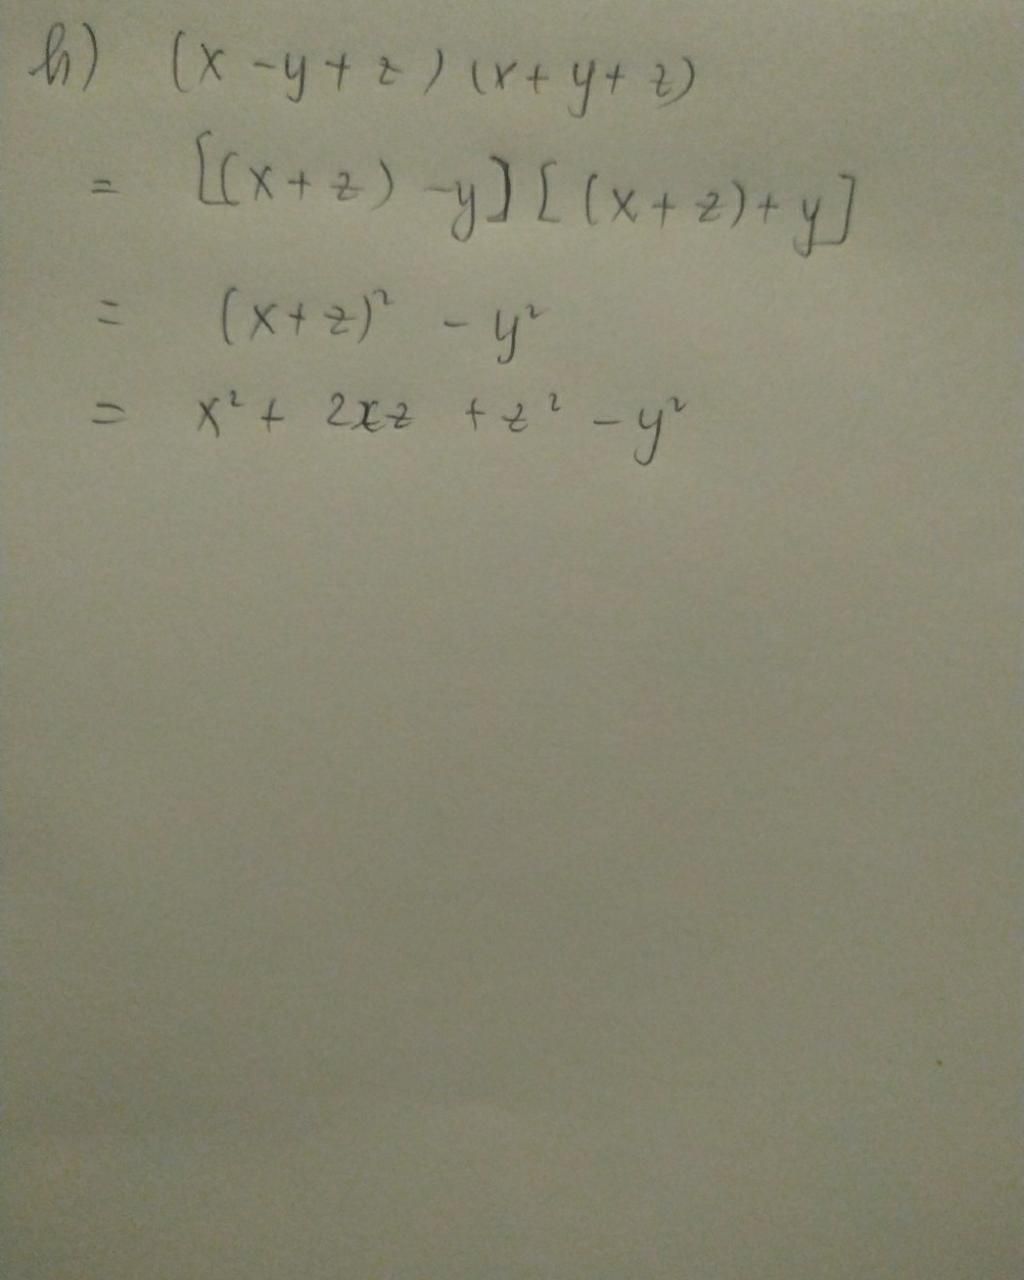 h) (x - y + z) (x + y + z)
= [(x + z) - y] [(x + z) + y]
= (x + z)² - y²
= x² + 2xz + z² - y²